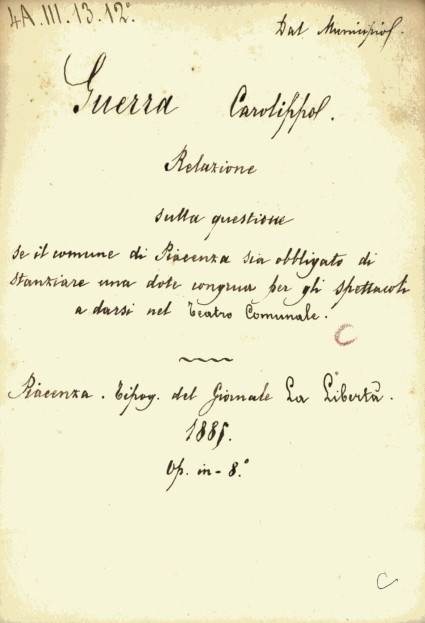 4A.III.13.12°
Dal Municipio.
Guerra Carolippo.
Relazione
sulla questione
se il comune di Piacenza sia obbligato di
stanziare una dote congrua per gli spettacoli
a darsi nel Teatro Comunale.
C
Piacenza. Tipog. del Giornale La Libertà.
1881.
Op. in-8.°
C